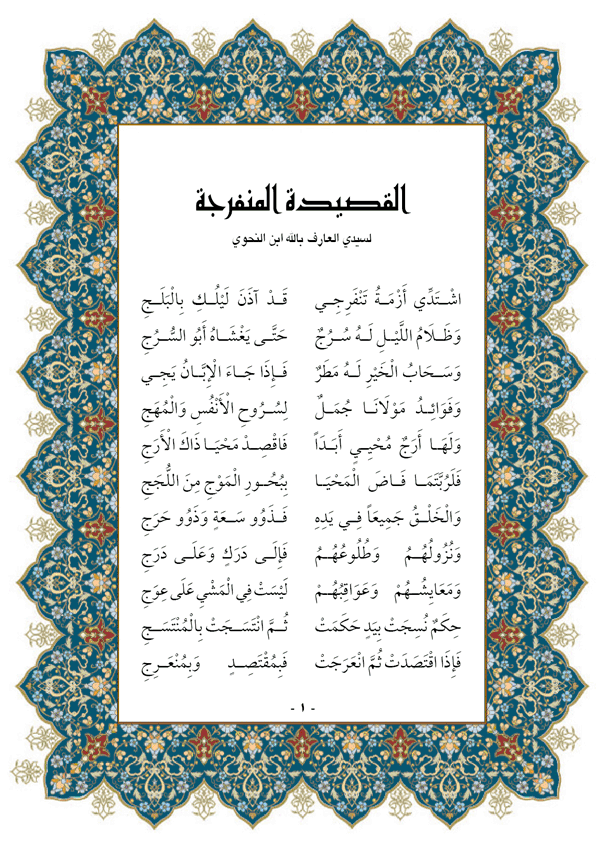 القصيدة المنفرجة
لسيدي العارف بالله ابن النحوي
اشْتَدِّي أَزْمَةُ تَنْفَرِجِي قَدْ آذَنَ لَيْلُكِ بِالْبَلَجِ
وَظَلَامُ اللَّيْلِ لَهُ سُرُجٌ حَتَّى يَغْشَاهُ أَبُو السُّرُجِ
وَسَحَابُ الْخَيْرِ لَهُ مَطَرٌ فَإِذَا جَاءَ الْإِبَّانُ يَجِي
وَفَوَائِدُ مَوْلَانَا جُمَلٌ لِسُرُوحِ الْأَنْفُسِ وَالْمُهَجِ
وَلَهَا أَرَجٌ مُحْيِي أَبَدَاً فَاقْصِدْ مَحْيَا ذَاكَ الْأَرَجِ
فَلَرُبَّتَمَا فَاضَ الْمَحْيَا بِبُحُورِ الْمَوْجِ مِنَ اللُّجَجِ
وَالْخَلْقُ جَمِيعَاً فِي يَدِهِ فَذَوُو سَعَةٍ وَذَوُو حَرَجِ
وَنُزُولُهُمُ وَطُلُوعُهُمُ فَإِلَى دَرَكٍ وَعَلَى دَرَجِ
وَمَعَايِشُهُمْ وَعَوَاقِبُهُمْ لَيْسَتْ فِي الْمَشْيِ عَلَى عِوَجِ
حِكَمٌ نُسِجَتْ بِيَدٍ حَكَمَتْ ثُمَّ انْتَسَجَتْ بِالْمُنْتَسَجِ
فَإِذَا اقْتَصَدَتْ ثُمَّ انْعَرَجَتْ فَبِمُقْتَصِدٍ وَبِمُنْعَرِجِ
- ١ -